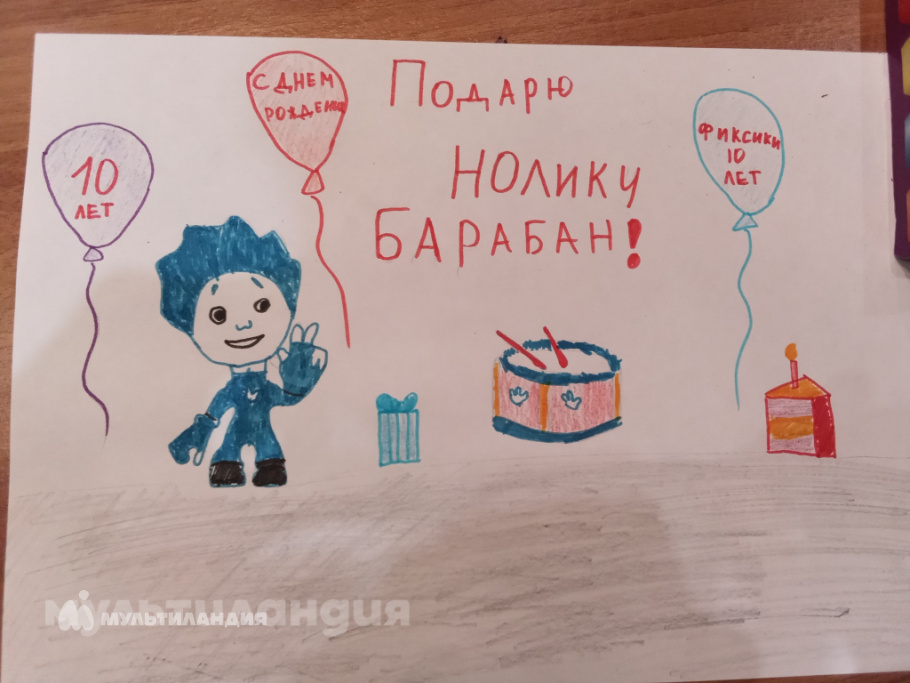 10
ЛЕТ
С ДНЕМ
РОЖДЕНИЯ
ПОДАРЮ
НОЛИКУ
БАРАБАН!
ФИКСИКИ
10
ЛЕТ
МУЛЬТИЛАНДИЯ
МУЛЬТИЛАНДИЯ